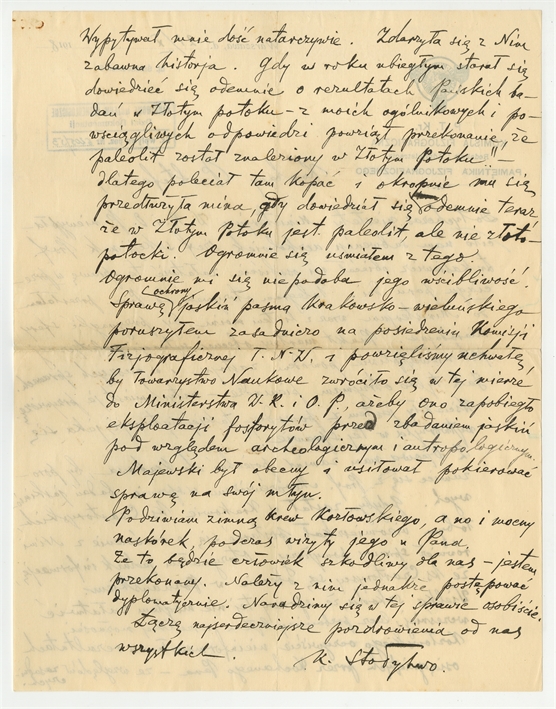 Wypytywał mnie dość natarczywie. Zdarzyła się z Nim
zabawna historja. Gdy w roku ubiegłym starał się
dowiedzieć się odemnie o rezultatach Pańskich ba-
dań w Złotym potoku – z moich ogólnikowych i po-
wściągliwych odpowiedzi powziął przekonanie, że
paleolit został znaleziony w Złotym Potoku" –
dlatego poleciał tam kopać i okropnie mu się
przedłużyła mina, gdy dowiedział się odemnie teraz
że w Złotym Potoku jest paleolit, ale nie złoto-
potocki. Ogromnie się uśmiałem z tego.
Ogromnie mi się niepodoba jego wścibliwość.
Sprawę ochrony jaskiń pasma Krakowsko-wieluńskiego
poruszyłem zasadniczo na posiedzeniu Komisji
Fizjograficznej T. N. W. i powzięliśmy uchwałę
by Towarzystwo Naukowe zwróciło się w tej mierze
do Ministerstwa W. R. i O. P., ażeby ono zapobiegło
eksploatacji fosforytów przed zbadaniem jaskiń
pod względem archeologicznym i antropologicznym.
Majewski był obecny i usiłował pokierować
sprawę na swój młyn.
Podziwiam zimną krew Kozłowskiego, a no i mocny
naskórek podczas wizyty jego u Pana.
Że to będzie człowiek szkodliwy dla nas – jestem
przekonany. Należy z nim jednakże postępować
dyplomatycznie. Naradzimy się w tej sprawie osobiście.
Łączę najserdeczniejsze pozdrowienia od nas
wszystkich. K. Stołyhwo.